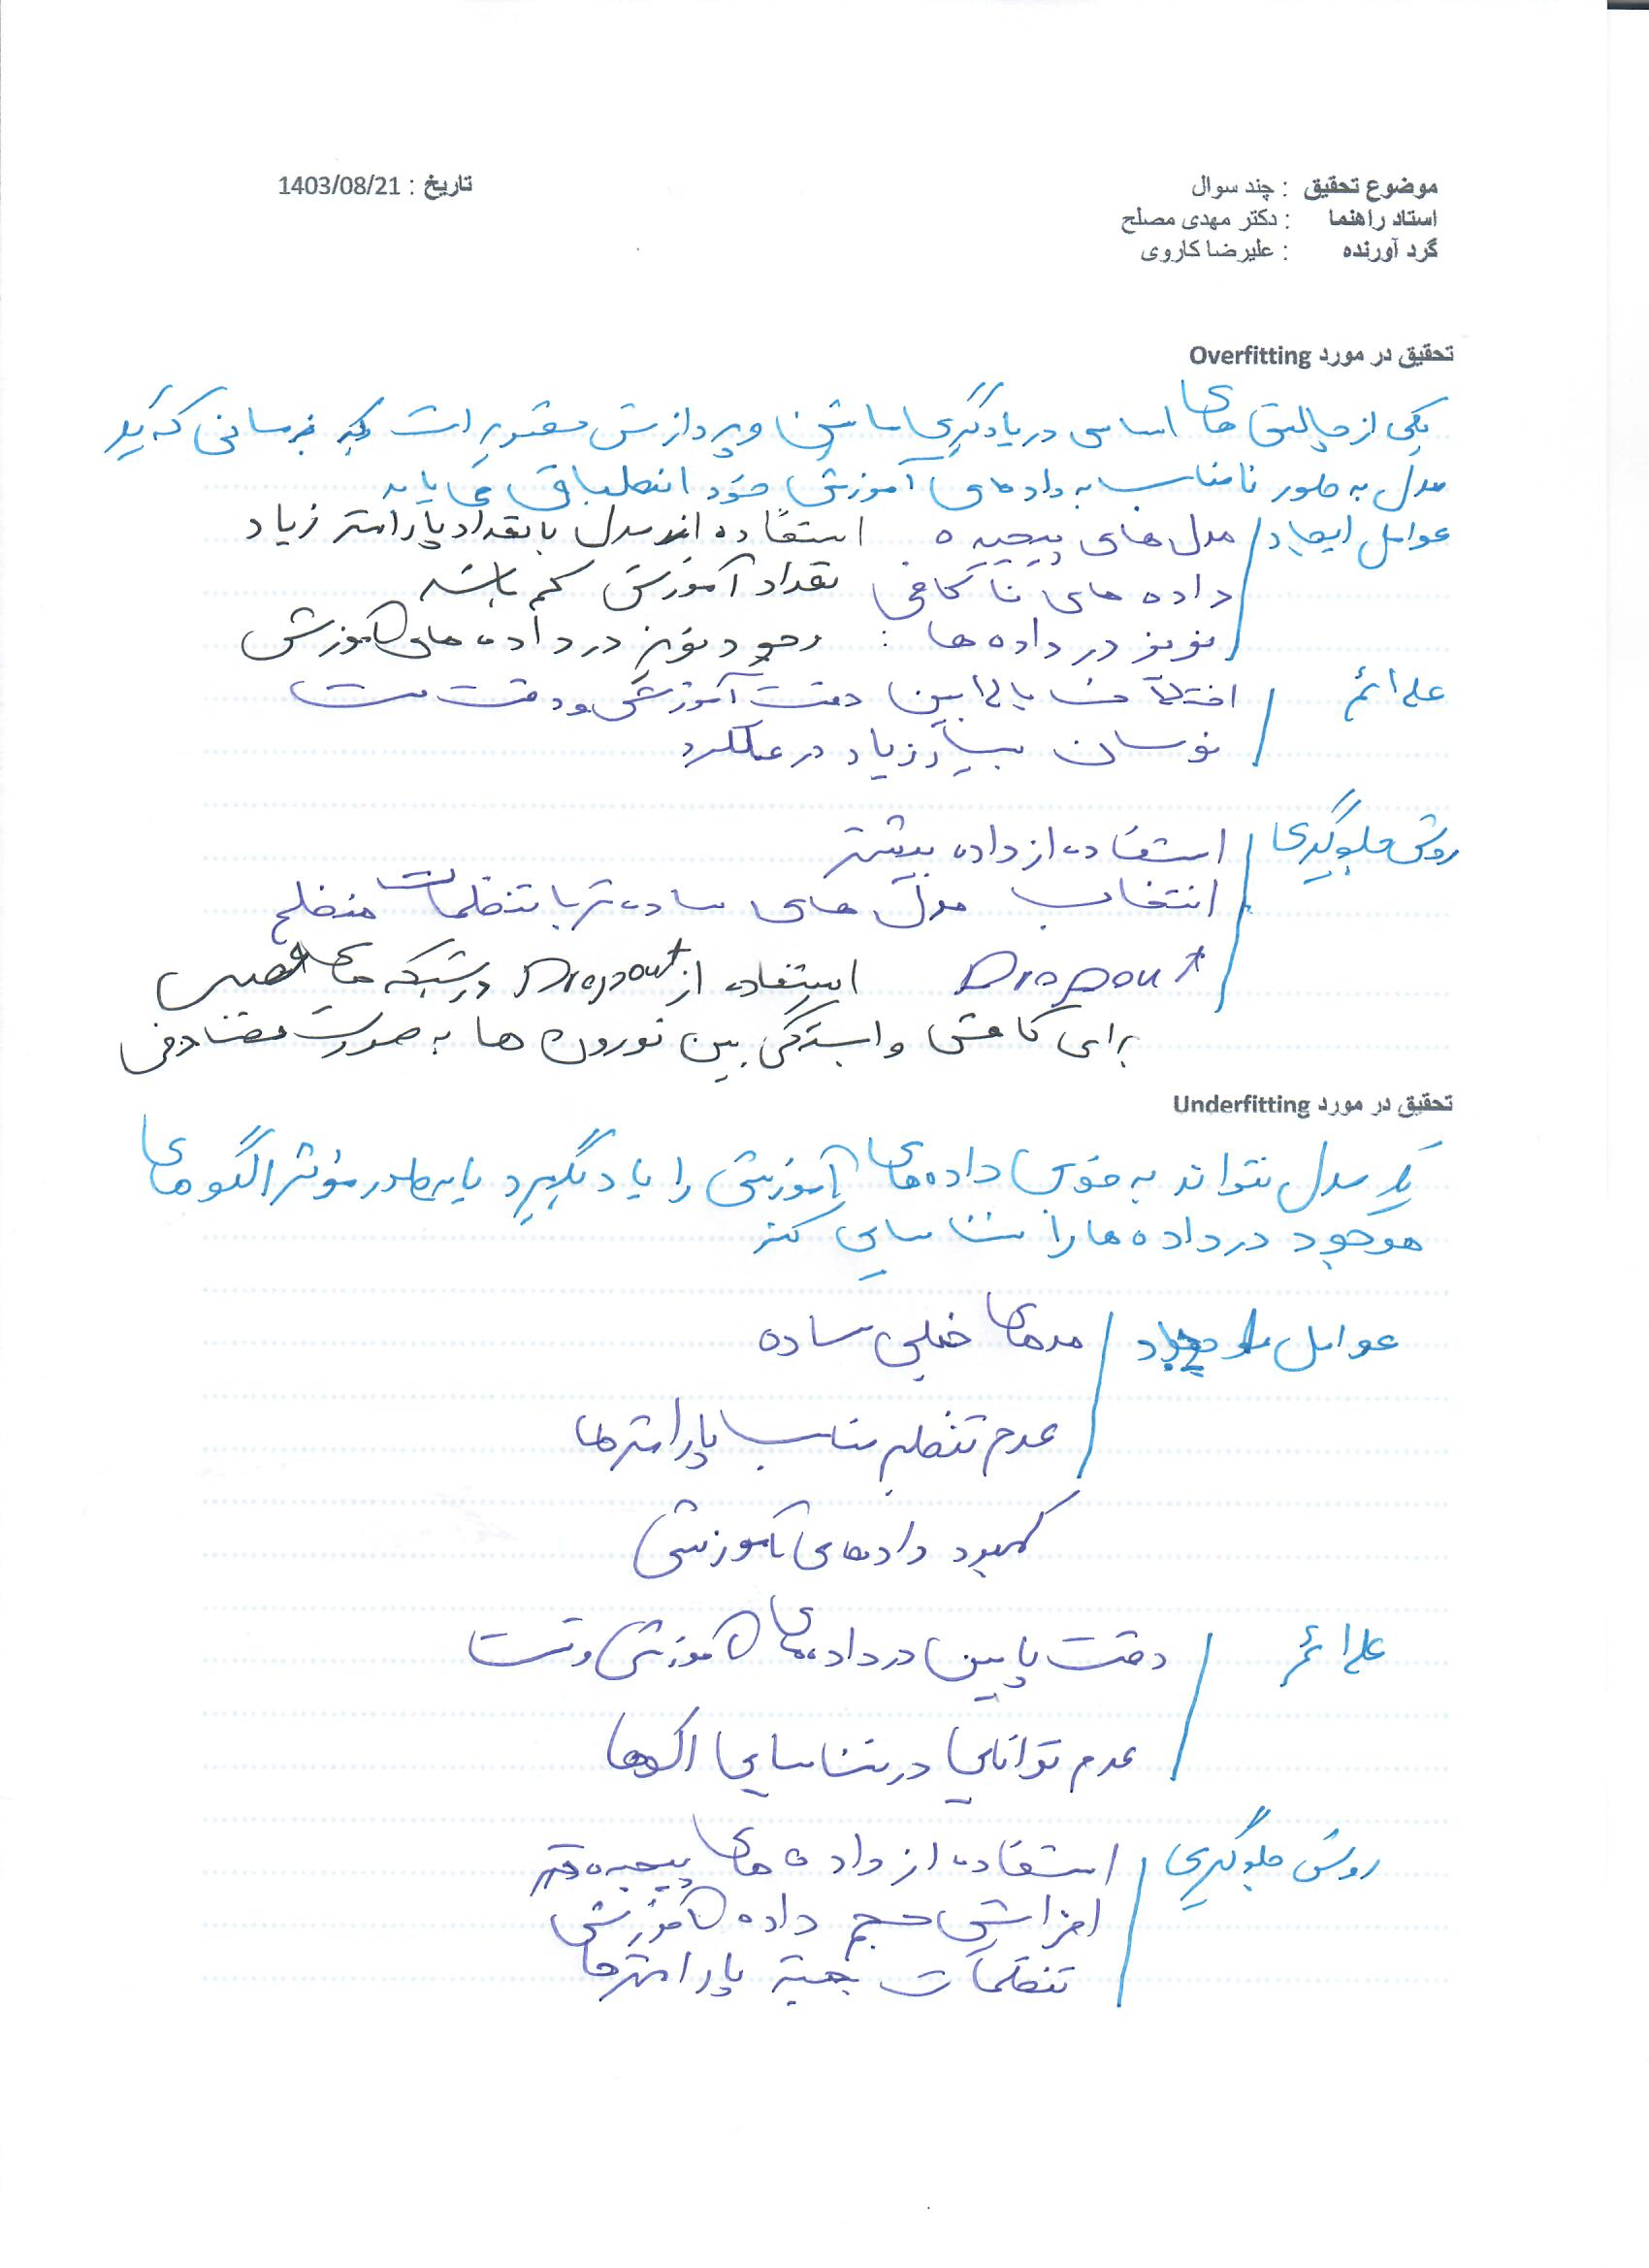 موضوع تحقیق : چند سوال
تاریخ : 1403/08/21
استاد راهنما : دکتر مهدی مصلح
گرد آورنده : علیرضا کاروی
تحقیق در مورد Overfitting
یکی از چالش های اساسی در یادگیری ماشین و پردازش تصویر است زمانی که یک
مدل به طور نامناسب به داده های آموزشی خود انطباق می یابد
عوامل ایجاد / مدل های پیچیده استفاده از مدل با تعداد پارامتر زیاد
داده های ناکافی تعداد آموزش کم باشد
نویز در داده ها : وجود نویز در داده های آموزش
علائم / اختلاف بالا بین دقت آموزشی و دقت تست
نوسان بسیار زیاد در عملکرد
روش جلوگیری / استفاده از داده بیشتر
انتخاب مدل های ساده تر با تنظیمات منظم
Dropout استفاده از Dropout در شبکه های عصبی
برای کاهش وابستگی بین نورون ها به صورت تصادفی
تحقیق در مورد Underfitting
یک مدل نتواند به خوبی داده های آموزشی را یاد بگیرد یا به طور موثر الگوهای
موجود در داده ها را شناسایی کند
عوامل / مدهای خیلی ساده
عدم تنظیم مناسب پارامترها
کمبود داده های آموزشی
علائم / دقت پایین در داده های آموزشی و تست
عدم توانایی در شناسایی الگوها
روش جلوگیری / استفاده از داده های پیچیده تر
افزایش حجم داده آموزشی
تنظیمات بهتر پارامترها